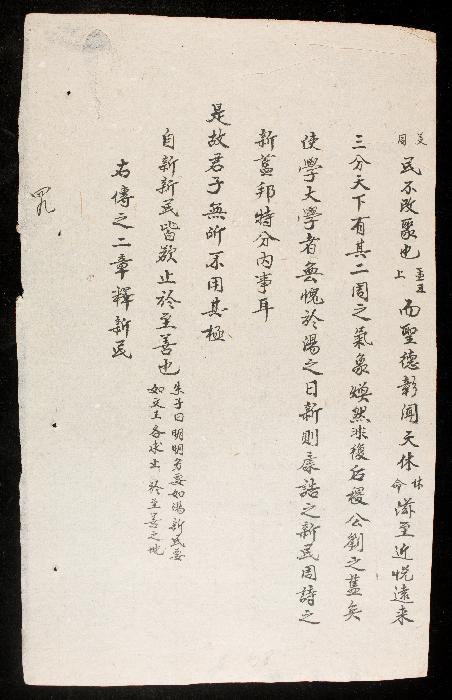 民不改聚也而聖德彰聞天休滋至近悅遠来
三分天下有其二周之氣象煥然非復后稷公劉之舊矣
使學大學者無愧於湯之日新則康誥之新民周詩之
新舊邦特分内事耳
是故君子無所不用其極
自新新民皆欲止於至善也
朱子曰明明德要如湯新民要
如文王各求止於至善之地
右傳之二章釋新民
四九